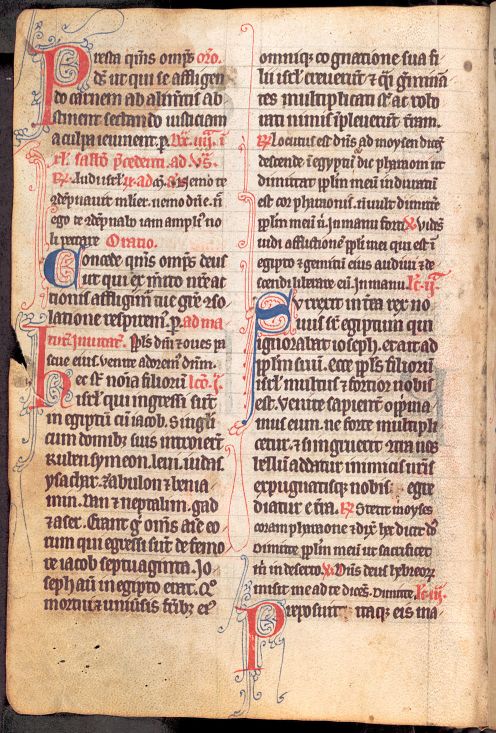 Presta qms omps oro.
ds ut qui se affligen
do carnem ab alimtis ab
stinent sectando iusticiam
a culpa ieiunent. p.
Concede qms omps deus
ut qui ex mito nre ac
tionis affligimr tue gre 9so
latione respirem9. p. ad ma
Ppls dni & oues pa
scue eius. venite adorem9 dnm.
Hec st noia filioru lco. i.
isrl qui ingressi sut
in egiptu cu iacob. singli
cum domib3 suis introiert
Ruben symeon. leui. iudas
ysachar. & zabulon & benia
min. Dan & neptalim. gad
& aser. Erant g omes aie eo
rum qui egressi sut de femo
re iacob septuaginta. Jo
seph aut in egipto erat. Qo
mortuo & uniusis frib3 ei9
omniq3 cognatione sua fi
lii isrl creuerut & qi gmina
tes multiplicati st ac robo
rati nimis ipleuerut tram.
Locutus est dns ad moysen dices
descende i egyptu & dic pharaoni ut
dimittat pplm meu induratu
est cor pharaonis. n uult dimitte
pplm meu n in manu forti. V. vides
uidi afflictione ppli mei qui est i
egipto & gemitu eius audiui & de
scendi liberare eu. In manu. lc. ii.
Surrexit intea rex no
uus sup egiptum qui
ignorabat ioseph. et ait ad
pplm suu. ecce ppls filioru
isrl multus & fortior nobis
est. venite sapient oppma
mus eum. ne forte multipli
cetur. & si ingruerit 9tra nos
bellu addatur inimicis nris
expugnatisq3 nobis egre
diatur e tra. R. Stetit moyses
coram pharaone & dixit hec dicit ds
Dimitte pplm meu ut sacrificet
m in deserto. V. Dns deus hebreor
misit me ad te dices. Dimitte. lc. iii.
Preposuit itaq eis ma